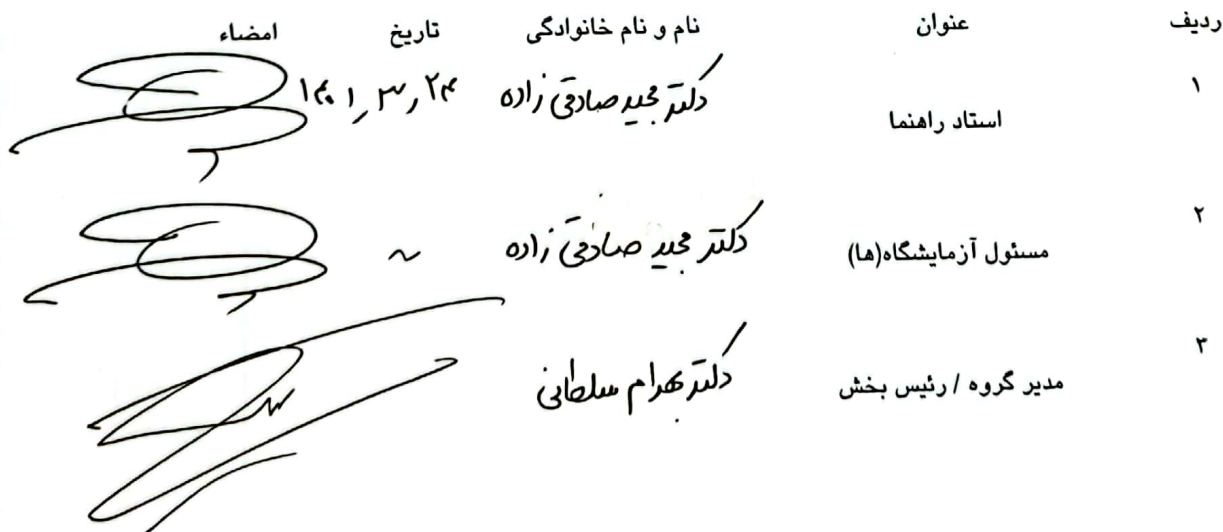 ردیف عنوان نام و نام خانوادگی تاریخ امضاء
۱ استاد راهنما دکتر مجید صادقی زاده ۱۴۰۱,۳,۲۴
۲ مسئول آزمایشگاه(ها) دکتر مجید صادقی زاده ~
۳ مدیر گروه / رئیس بخش دکتر بهرام سلطانی